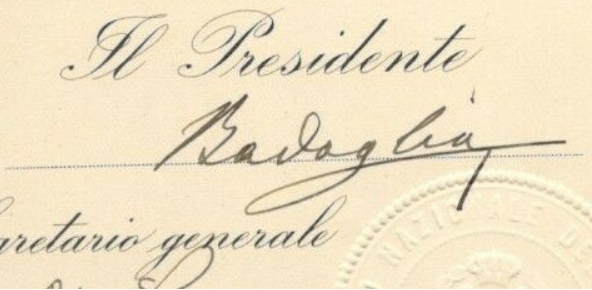 Il Presidente
Badoglio
Segretario generale
NAZIONALE DE